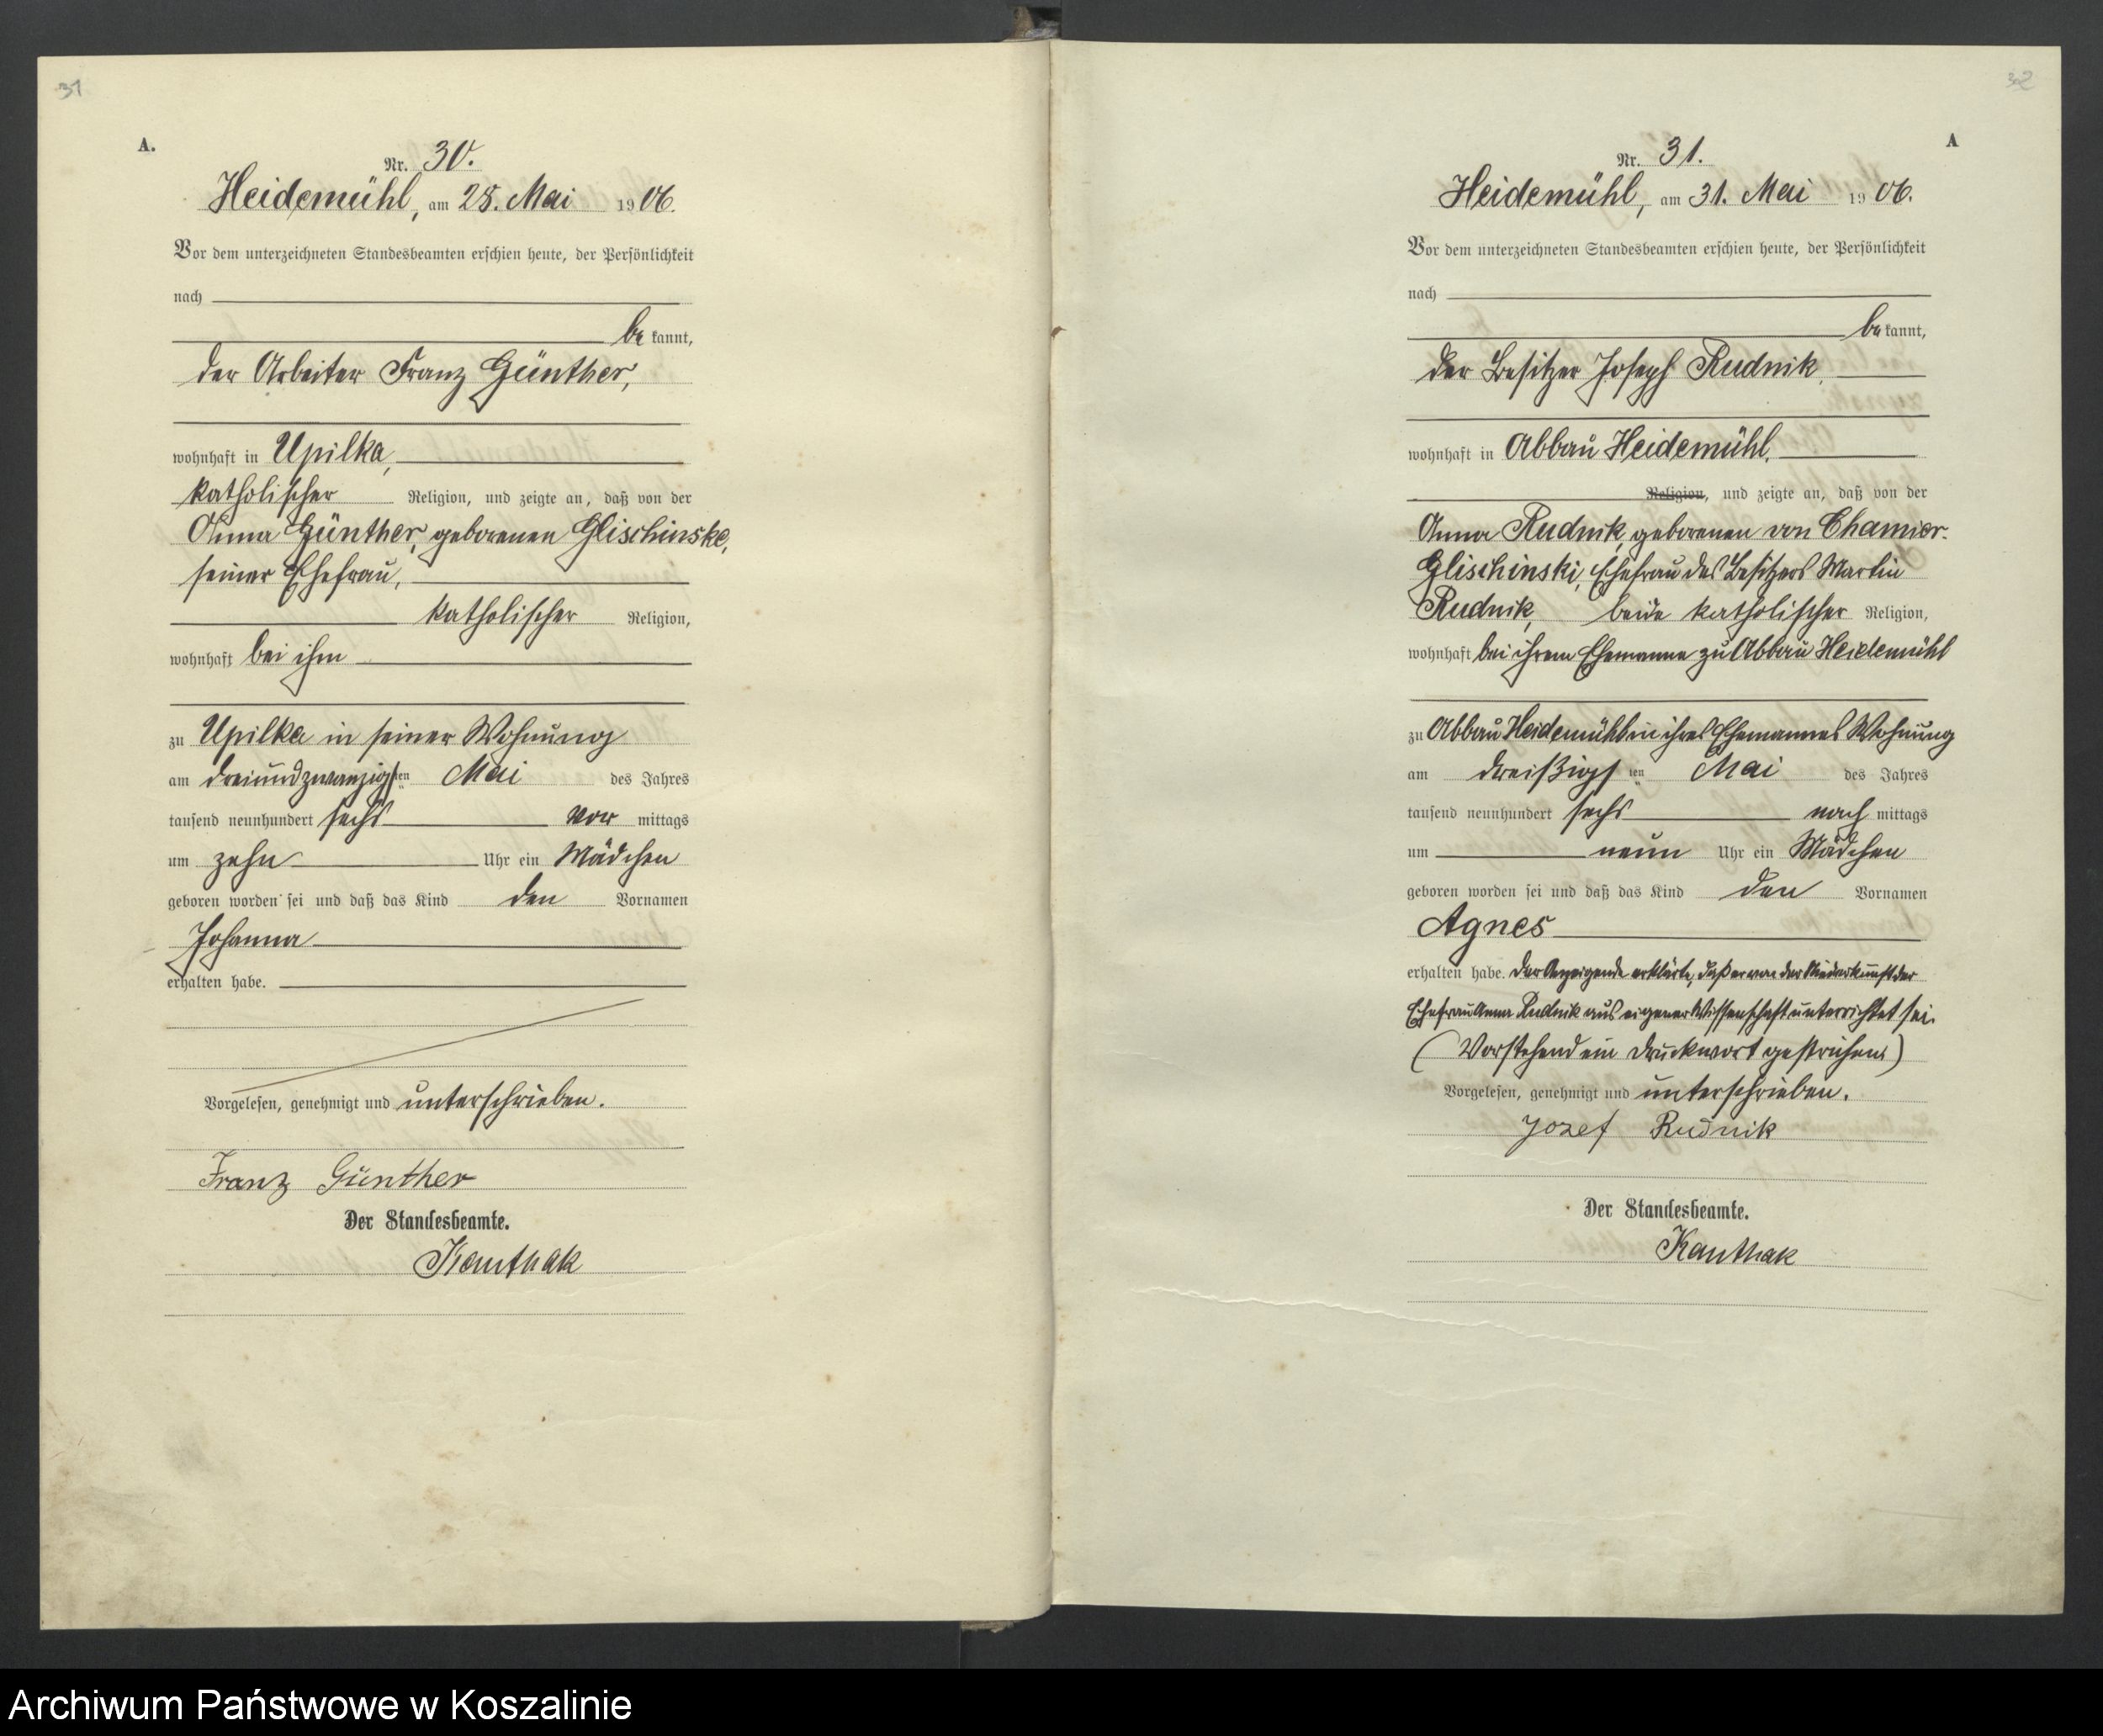 31
A.
Nr. 30.
Heidemühl, am 28. Mai 1906.
Vor dem unterzeichneten Standesbeamten erschien heute, der Persönlichkeit
nach
be kannt,
der Arbeiter Franz Günther,
wohnhaft in Upilka,
katholischer Religion, und zeigte an, daß von der
Anna Günther, geborenen Glischinske,
seiner Ehefrau,
katholischer Religion,
wohnhaft bei ihm
zu Upilka in seiner Wohnung
am dreiundzwanzigsten Mai des Jahres
tausend neunhundert sechs vor mittags
um zehn Uhr ein Mädchen
geboren worden sei und daß das Kind den Vornamen
Johanna
erhalten habe.
Vorgelesen, genehmigt und unterschrieben.
Franz Günther
Der Standesbeamte.
Kanthak
32
A
Nr. 31.
Heidemühl, am 31. Mai 1906.
Vor dem unterzeichneten Standesbeamten erschien heute, der Persönlichkeit
nach
be kannt,
der Besitzer Joseph Rudnik,
wohnhaft in Abbau Heidemühl,
Religion, und zeigte an, daß von der
Anna Rudnik, geborenen von Chamier-
Glischinski, Ehefrau des Besitzers Martin
Rudnik, beide katholischer Religion,
wohnhaft bei ihrem Ehemanne zu Abbau Heidemühl
zu Abbau Heidemühl in ihres Ehemannes Wohnung
am dreißigsten Mai des Jahres
tausend neunhundert sechs nach mittags
um neun Uhr ein Mädchen
geboren worden sei und daß das Kind den Vornamen
Agnes
erhalten habe. Der Anzeigende erklärte, daß er von der Niederkunft der
Ehefrau Anna Rudnik aus eigener Wissenschaft unterrichtet sei.
(Vorstehend ein Druckwort gestrichen.)
Vorgelesen, genehmigt und unterschrieben.
Jozef Rudnik
Der Standesbeamte.
Kanthak
Archiwum Państwowe w Koszalinie